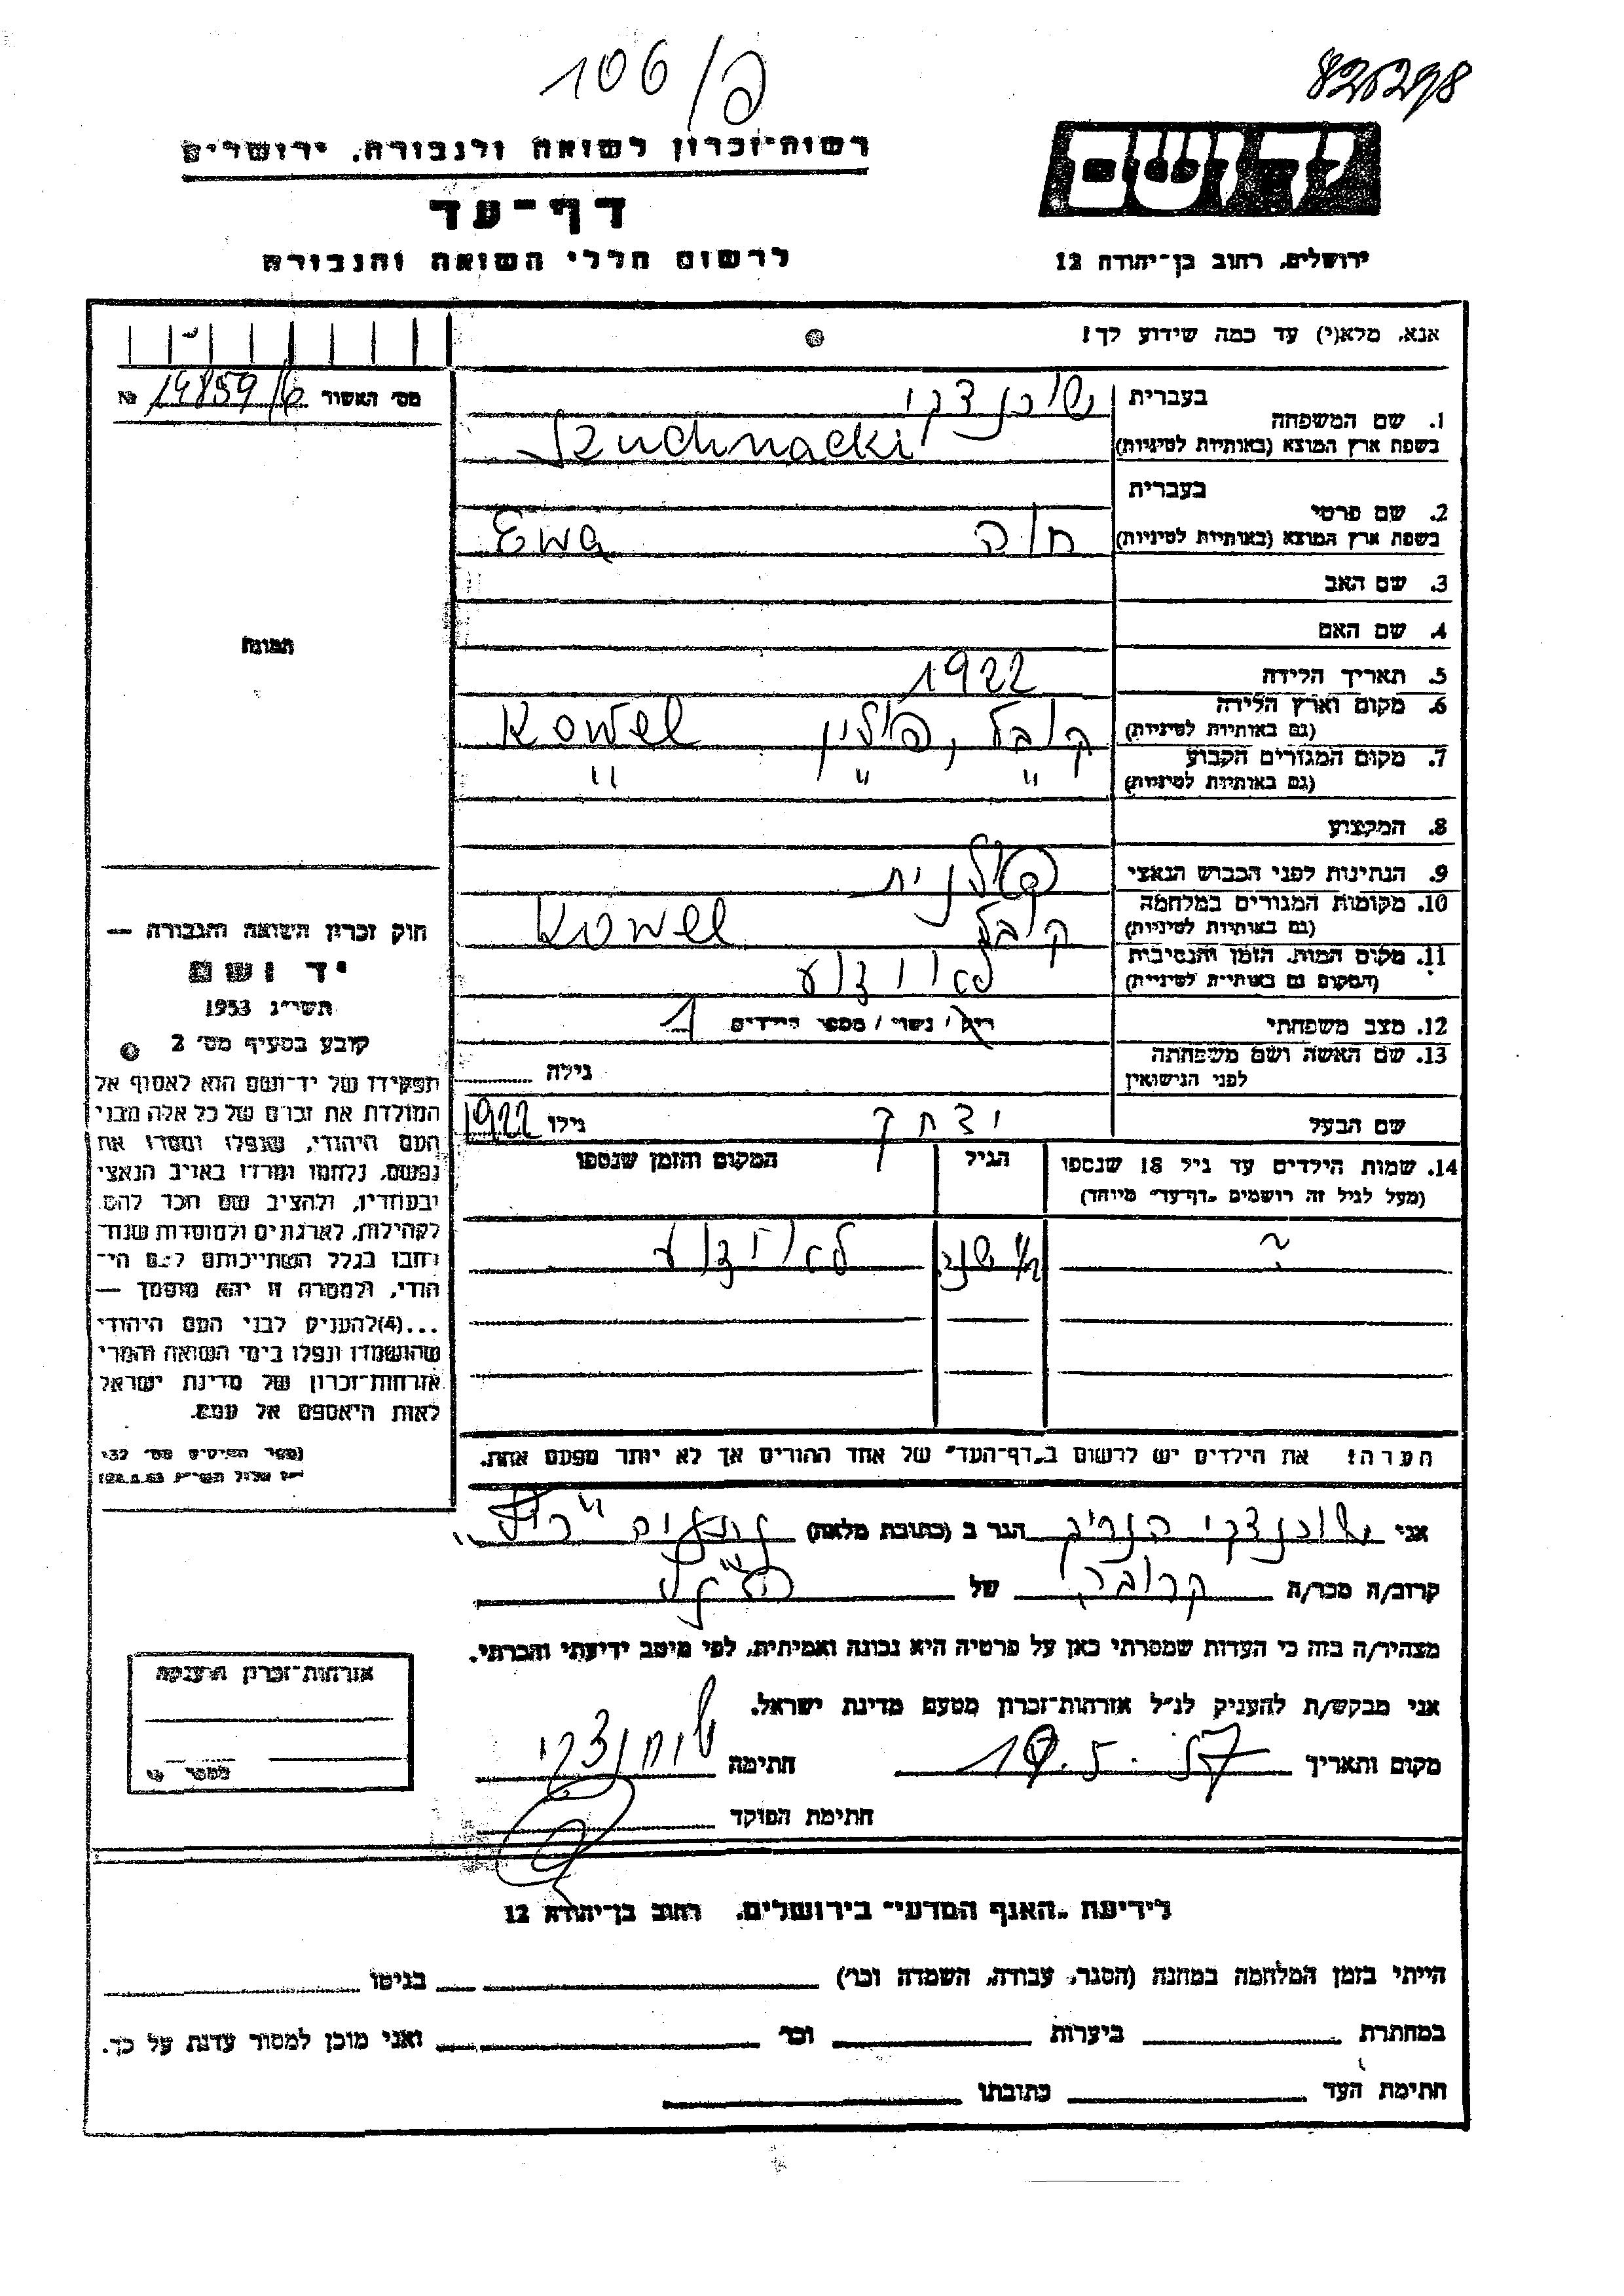 106/פ
826298
רשות־זכרון לשואה ולגבורה, ירושלים
דף־עד
לרשום חללי השואה והגבורה
יד ושם
ירושלים, רחוב בן־יהודה 12
אנא, מלא(י) עד כמה שידוע לך!
מס׳ האשור 14859/6 №
בעברית
1. שם המשפחה שוכנצקי
בשפת ארץ המוצא (באותיות לטיניות) Szuchnacki
בעברית
2. שם פרטי
בשפת ארץ המוצא (באותיות לטיניות) חוה Ewa
3. שם האב
4. שם האם
5. תאריך הלידה 1922
6. מקום וארץ הלידה קובל, פולין Kowel
(גם באותיות לטיניות)
7. מקום המגורים הקבוע " " "
(גם באותיות לטיניות)
8. המקצוע
9. הנתינות לפני הכבוש הנאצי פולנית
10. מקומות המגורים במלחמה קובל Kowel
(גם באותיות לטיניות)
11. מקום המות, הזמן והנסיבות לא ידוע
(המקום גם באותיות לטיניות)
12. מצב משפחתי רוק/ נשוי / מספר הילדים 1
13. שם האשה ושם משפחתה
לפני הנישואין גילה
שם הבעל יצחק גילו 1922
14. שמות הילדים עד גיל 18 שנספו הגיל המקום והזמן שנספו
(מעל לגיל זה רושמים „דף־עד״ מיוחד)
? שנה לא ידוע
הערה: את הילדים יש לרשום ב„דף־העד״ של אחד ההורים אך לא יותר מפעם אחת.
תמונה
חוק זכרון השואה והגבורה —
יד ושם
תשי״ג 1953
קובע בסעיף מס׳ 2
תפקידו של יד־ושם הוא לאסוף אל
המולדת את זכרם של כל אלה מבני
העם היהודי, שנפלו ומסרו את
נפשם, נלחמו ומרדו באויב הנאצי
ובעוזריו, ולהציב שם וזכר להם,
לקהילות, לארגונים ולמוסדות שנח־
רבו בגלל השתייכותם לעם הי־
הודי, ולמטרה זו יהא מוסמך —
...(4)להעניק לבני העם היהודי
שהושמדו ונפלו בימי השואה והמרי
אזרחות־זכרון של מדינת ישראל
לאות היאספם אל עמם.
(ספר החוקים מס׳ 132
אני שוכנצקי הנריק הגר ב (כתובת מלאה)
קרוב/ה מכר/ה קרובה של
מצהיר/ה בזה כי העדות שמסרתי כאן על פרטיה היא נכונה ואמיתית, לפי מיטב ידיעתי והכרתי.
אני מבקש/ת להעניק לנ״ל אזרחות־זכרון מטעם מדינת ישראל.
מקום ותאריך 19.5.57 חתימה שוחנצקי
חתימת הפוקד
אזרחות־זכרון הוענקה
לידיעת „האגף המדעי״ בירושלים, רחוב בן־יהודה 12
הייתי בזמן המלחמה במחנה (הסגר, עבודה, השמדה וכו׳) בגיטו
במחתרת ביערות וכו׳ ואני מוכן למסור עדות על כך.
חתימת העד כתובתו